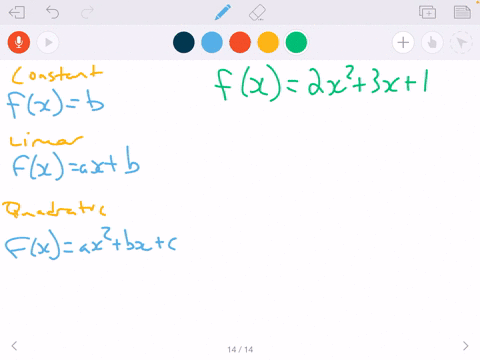 Constant
f(x) = b
Linear
f(x) = ax + b
Quadratic
f(x) = ax² + bx + c
f(x) = 2x² + 3x + 1
14 / 14